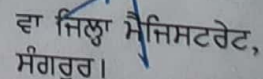 ਵਾ ਜਿਲ੍ਹਾ ਮੈਜਿਸਟਰੇਟ,
ਸੰਗਰੂਰ।